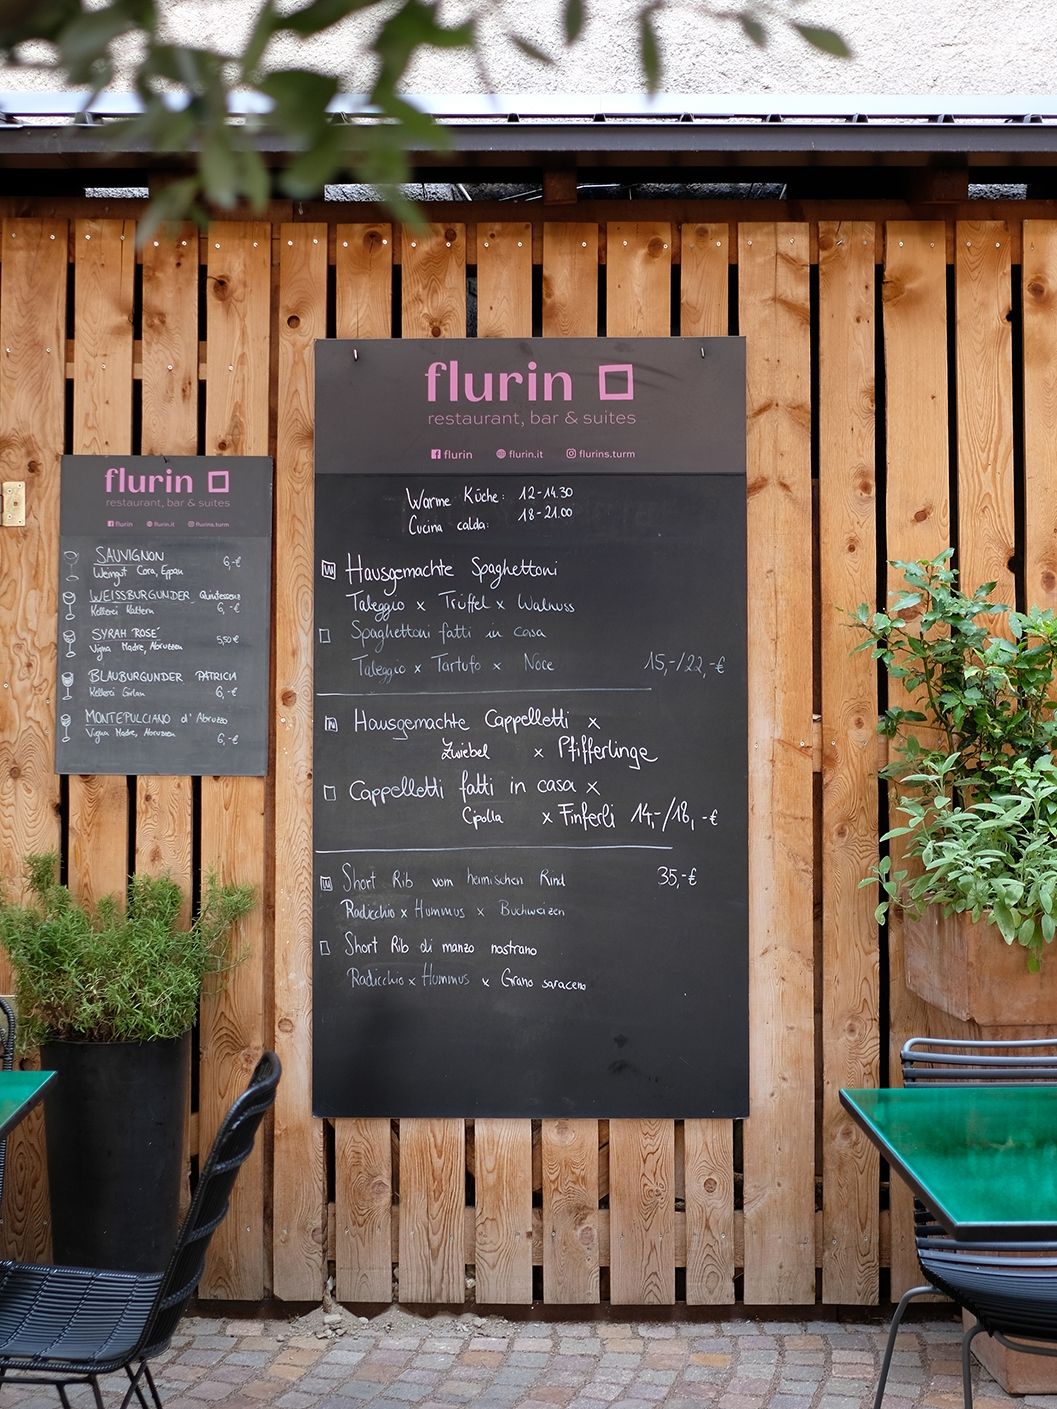 flurin
restaurant, bar & suites
flurin flurin.it flurins.turm
SAUVIGNON 6,-€
Weingut Cora, Eppan
WEISSBURGUNDER Quintessenz
Kellerei Kaltern 6,-€
SYRAH ROSÉ 5,50€
Vigna Madre, Abruzzen
BLAUBURGUNDER PATRICIA
Kellerei Girlan 6,-€
MONTEPULCIANO d'Abruzzo
Vigna Madre, Abruzzen 6,-€
flurin
restaurant, bar & suites
flurin flurin.it flurins.turm
Warme Küche: 12-14.30
Cucina calda: 18-21.00
Hausgemachte Spaghettoni
Taleggio x Trüffel x Walnuss
Spaghettoni fatti in casa
Taleggio x Tartufo x Noce 15,-/22,-€
Hausgemachte Cappelletti x
Zwiebel x Pfifferlinge
Cappelletti fatti in casa x
Cipolla x Finferli 14,-/18,-€
Short Rib vom heimischen Rind 35,-€
Radicchio x Hummus x Buchweizen
Short Rib di manzo nostrano
Radicchio x Hummus x Grano saraceno